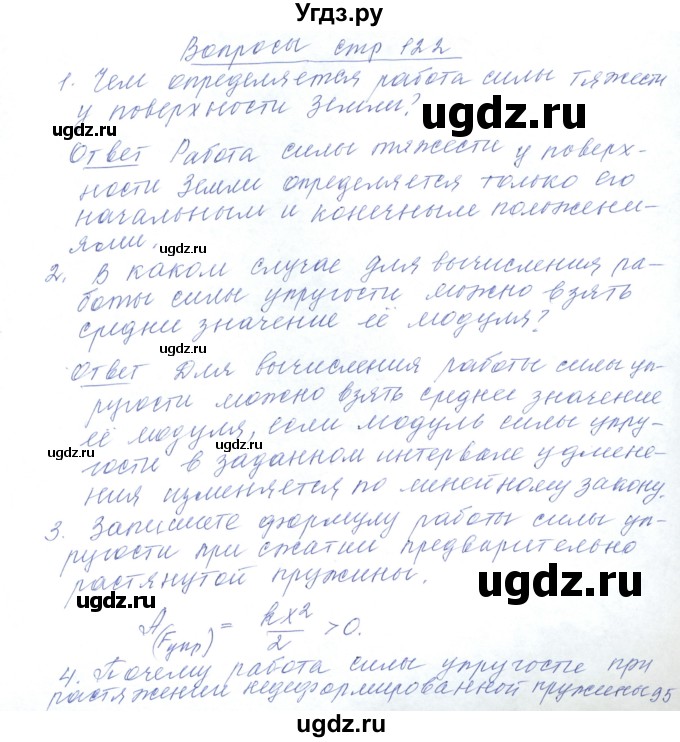 Угдз.ру
Вопросы стр 122
1. Чем определяется работа силы тяжести
у поверхности Земли?
угдз.ру
угдз.ру
Ответ Работа силы тяжести у поверх-
ности Земли определяется только его
начальным и конечным положени-
ями.
угдз.ру
2. В каком случае для вычисления ра-
боты силы упругости можно взять
средни значение её модуля?
угдз.ру
Ответ Для вычисления работы силы уп-
ругости можно взять среднее значение
её модуля, если модуль силы упру-
угдз.ру
гости в заданном интервале удлине-
ния изменяется по линейному закону.
3. Запишите формулу работы силы уп-
ругости при сжатии предварительно
растянутой пружины.
угдз.ру
угдз.ру
A(Fупр) = kx²/2 > 0.
4. Почему работа силы упругости при
растяжении недеформированной пружины 95
угдз.ру